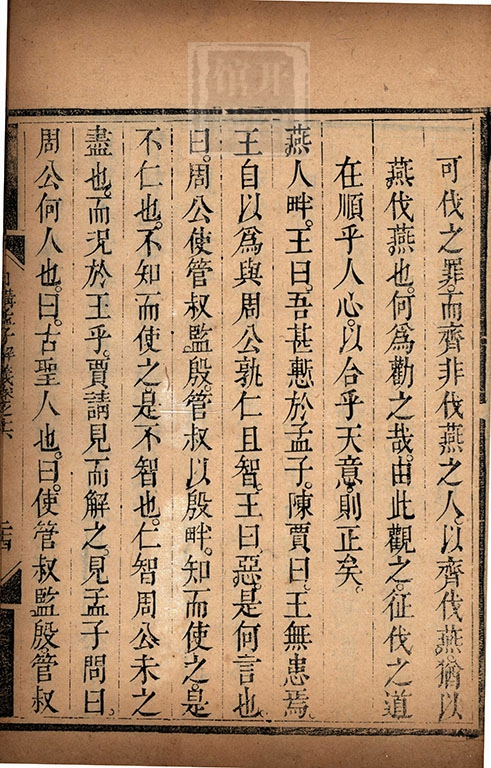 可伐之罪。而齊非伐燕之人。以齊伐燕。猶以
燕伐燕也。何為勸之哉。由此觀之。征伐之道
在順乎人心。以合乎天意。則正矣。
燕人畔。王曰。吾甚慙於孟子。陳賈曰。王無患焉。
王自以為與周公孰仁且智。王曰。惡。是何言也。
曰。周公使管叔監殷。管叔以殷畔。知而使之。是
不仁也。不知而使之。是不智也。仁智周公未之
盡也。而況於王乎。賈請見而解之。見孟子問曰。
周公何人也。曰。古聖人也。曰。使管叔監殷。管叔
日講孟子解義卷之六